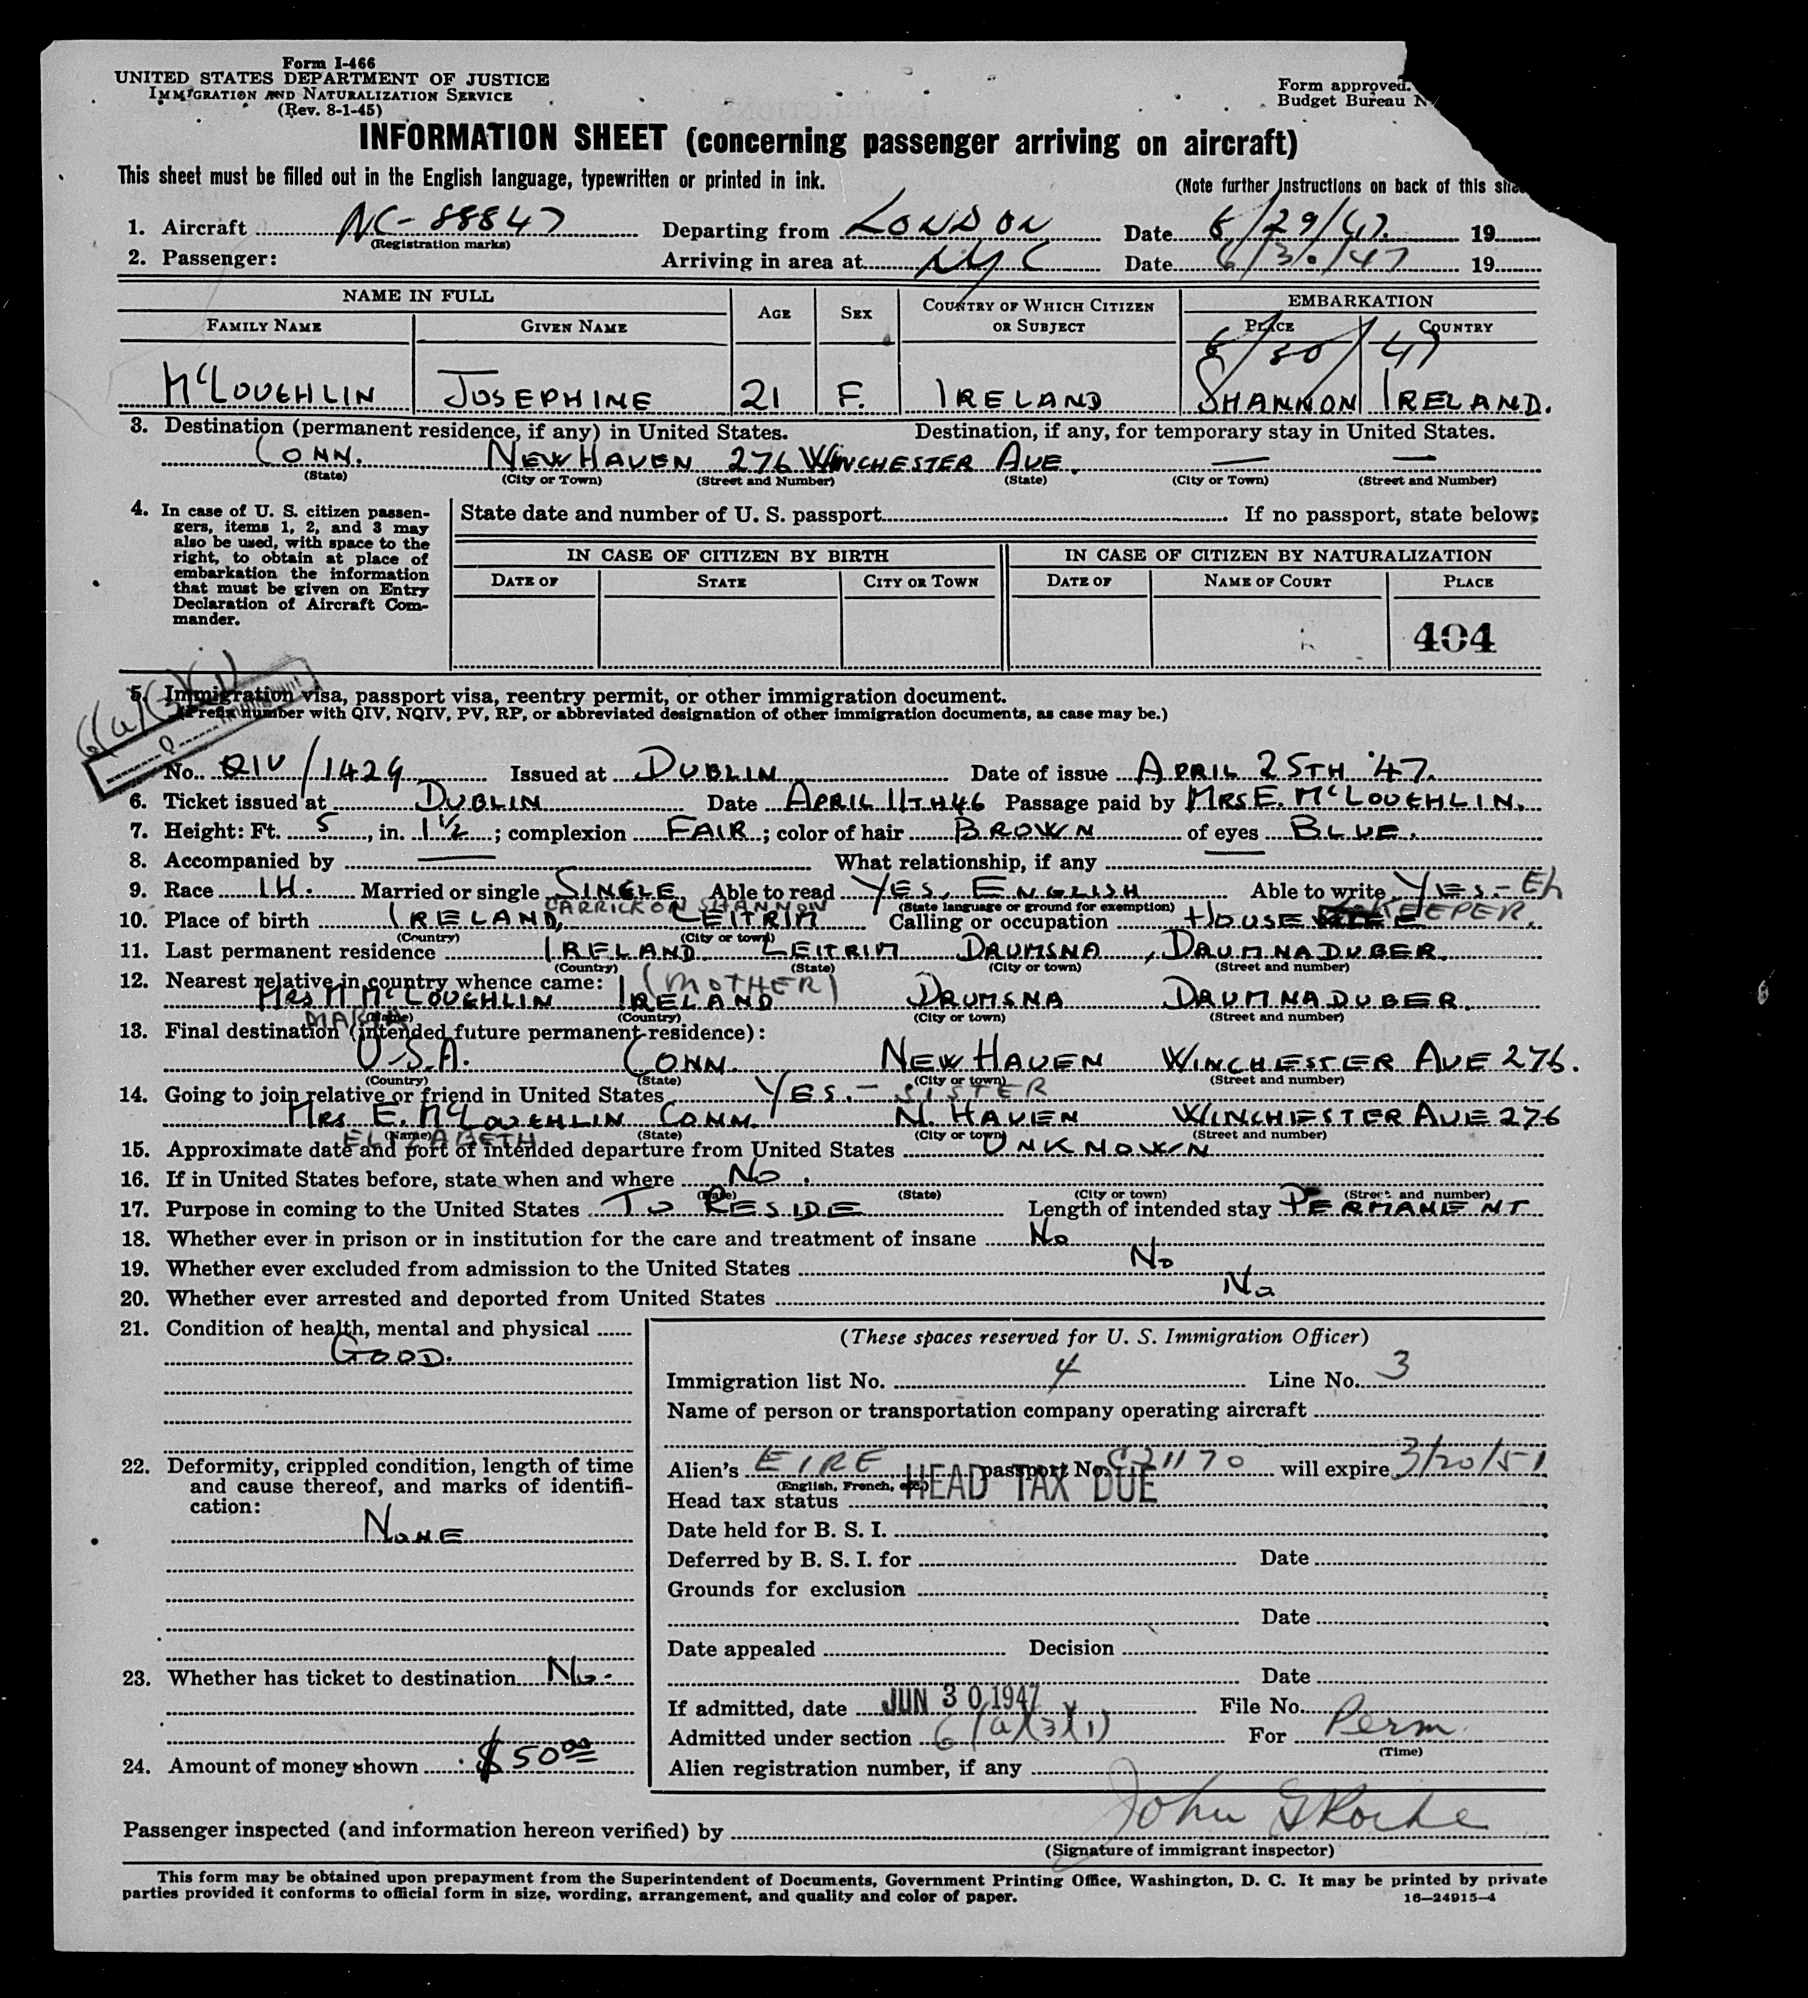 Form I-466
UNITED STATES DEPARTMENT OF JUSTICE
IMMIGRATION AND NATURALIZATION SERVICE
(Rev. 8-1-45)
Form approved.
Budget Bureau N
INFORMATION SHEET (concerning passenger arriving on aircraft)
This sheet must be filled out in the English language, typewritten or printed in ink.
(Note further instructions on back of this
1. Aircraft NC-88847 Departing from LONDON Date 6/29/47. 19
(Registration marks)
2. Passenger: Arriving in area at NYC Date 6/30/47 19
NAME IN FULL AGE SEX COUNTRY OF WHICH CITIZEN OR SUBJECT EMBARKATION
FAMILY NAME GIVEN NAME PLACE COUNTRY
6/30/47
McLOUGHLIN JOSEPHINE 21 F. IRELAND SHANNON IRELAND.
3. Destination (permanent residence, if any) in United States. Destination, if any, for temporary stay in United States.
CONN. NEW HAVEN 276 WINCHESTER AVE. — —
(State) (City or Town) (Street and Number) (State) (City or Town) (Street and Number)
4. In case of U. S. citizen passen-
gers, items 1, 2, and 3 may
also be used, with space to the
right, to obtain at place of
embarkation the information
that must be given on Entry
Declaration of Aircraft Com-
mander.
State date and number of U. S. passport If no passport, state below:
IN CASE OF CITIZEN BY BIRTH IN CASE OF CITIZEN BY NATURALIZATION
DATE OF STATE CITY OR TOWN DATE OF NAME OF COURT PLACE
404
6(a)(3)(1)
Q
5. Immigration visa, passport visa, reentry permit, or other immigration document.
(Prefix number with QIV, NQIV, PV, RP, or abbreviated designation of other immigration documents, as case may be.)
No. QIV/1429 Issued at DUBLIN Date of issue APRIL 25TH '47.
6. Ticket issued at DUBLIN Date APRIL 11TH 46 Passage paid by MRS E. McLOUGHLIN.
7. Height: Ft. 5, in. 1 1/2; complexion FAIR; color of hair BROWN of eyes BLUE.
8. Accompanied by — What relationship, if any —
9. Race IH. Married or single SINGLE Able to read YES, ENGLISH Able to write YES - Eh
(State language or ground for exemption)
CARRICK ON SHANNON
10. Place of birth IRELAND, LEITRIM Calling or occupation HOUSEKEEPER.
(Country) (City or town)
11. Last permanent residence IRELAND LEITRIM DRUMSNA, DRUMNADUBER.
(Country) (State) (City or town) (Street and number)
12. Nearest relative in country whence came: (MOTHER)
MRS M McLOUGHLIN IRELAND DRUMSNA DRUMNADUBER.
MARIA (Name) (Country) (City or town) (Street and number)
13. Final destination (intended future permanent residence):
U.S.A. CONN. NEW HAVEN WINCHESTER AVE 276.
(Country) (State) (City or town) (Street and number)
14. Going to join relative or friend in United States YES. - SISTER
MRS. E. McLOUGHLIN CONN. N. HAVEN WINCHESTER AVE 276
ELIZABETH (Name) (State) (City or town) (Street and number)
15. Approximate date and port of intended departure from United States UNKNOWN
16. If in United States before, state when and where NO.
(Date) (State) (City or town) (Street and number)
17. Purpose in coming to the United States TO RESIDE Length of intended stay PERMANENT
18. Whether ever in prison or in institution for the care and treatment of insane No
19. Whether ever excluded from admission to the United States No
20. Whether ever arrested and deported from United States No
21. Condition of health, mental and physical
GOOD.
22. Deformity, crippled condition, length of time
and cause thereof, and marks of identifi-
cation:
NONE
23. Whether has ticket to destination No.
24. Amount of money shown $50 00
(These spaces reserved for U. S. Immigration Officer)
Immigration list No. 4 Line No. 3
Name of person or transportation company operating aircraft
Alien's EIRE passport No. C21170 will expire 3/20/51
(English, French, etc.)
Head tax status HEAD TAX DUE
Date held for B. S. I.
Deferred by B. S. I. for Date
Grounds for exclusion
Date
Date appealed Decision
Date
If admitted, date JUN 30 1947 File No.
Admitted under section 6(a)(3)(1) For Perm
(Time)
Alien registration number, if any
Passenger inspected (and information hereon verified) by John G Roche
(Signature of immigrant inspector)
This form may be obtained upon prepayment from the Superintendent of Documents, Government Printing Office, Washington, D. C. It may be printed by private
parties provided it conforms to official form in size, wording, arrangement, and quality and color of paper.
16—24915-4